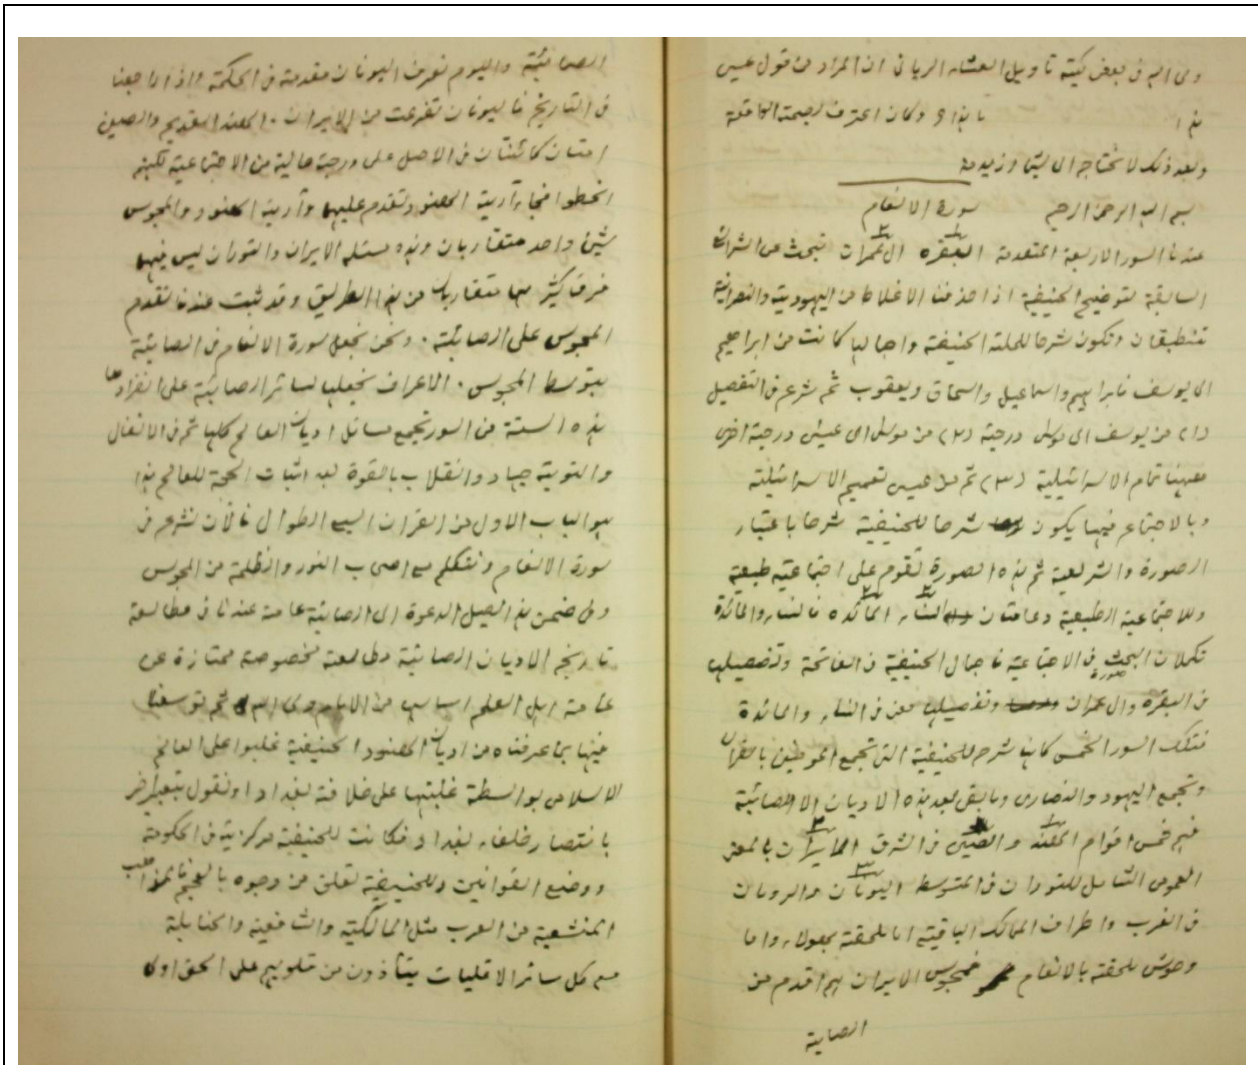 ولى الله فى بعض كتبه تاويل العشاء الربانى ان المراد من قول عيسى
هذا وكان اعترف لصحة الكاملة
وبعد ذلك لا نحتاج الى شئ وزيادة
بسم الله الرحمن الرحيم سورة الانعام
عندنا السور الاربعة المتقدمة البقرة ال عمران تبحث عن الشرائع
السابقة لتوضيح الحنيفية اذا حذفنا الاغلاط من اليهودية والنصرانية
تنطبقان وتكون شرحا للملة الحنيفة واجمالها كانت من ابراهيم
الى يوسف فابراهيم واسماعيل واسحاق ويعقوب ثم شرع فى التفصيل
(١) من يوسف الى موسى درجة (٢) من موسى الى عيسى درجة اخرى
فههنا تمام الاسرائيلية (٣) ثم من عيسى تعميم الاسرائيلية
وبالاجتماع فيها يكون شرحا للحنيفية شرحا باعتبار
الصورة والشريعة ثم هذه الصورة تقوم على اجتماعية طبيعية
وللاجتماعية الطبيعية دعامتان النساء المائدة فالنساء والمائدة
تكملان البحث فى الاجتماعية فاجمال الحنيفية فى الفاتحة وتفصيلها
فى البقرة وال عمران وتفصيلها معنى فى النساء والمائدة
فتلك السور الخمس كانها شرح للحنيفية التى تجمع الموطنين بالقران
وتجمع اليهود والنصارى وما بقى بعد هذه الاديان الا الصائبة
فهم خمس اقوام الهند والصين فى الشرق الايران بالمعنى
العمومى الشامل للتوران فى المتوسط اليونان والرومان
فى الغرب واطراف الممالك الباقية اما ملحقة بهولاء واما
وحوش ملحقة بالانعام فمجوس الايران هم اقدم من
الصابية
الصائبة واليوم نعرف اليونان مقدمة فى الحكمة واذا راجعنا
فى التاريخ فاليونان تفرعت من الايران. الهند القديم والصين
امتان كانتا فى الاصل على درجة عالية من الاجتماعية لكنهم
انحطوا فجاء آرية الهنود وتقدم عليهم وآرية الهنود والمجوس
شئ واحد متقاربان وهذه مسئلة الايران والتوران ليس فيها
فرق كثير هما متقاربان من هذا الطريق وقد ثبت عندنا تقدم
المجوس على الصابئة. ونحن نجعل سورة الانعام فى الصابئة
بتوسط المجوس. الاعراف نجعلها لسائر الصابئة على انفرادها
هذه الستة من السور تجمع مسائل اديان العالم كلها ثم فى الانفال
والتوبة جهاد وانقلاب بالقوة بعد اثبات الحجة للعالم هذا
هو الباب الاول من القران السبع الطوال فالآن نشرع فى
سورة الانعام ونتكلم مع اصحاب النور والظلمة من المجوس
وفى ضمن هذ السبيل الدعوة الى الصابئة عامة عندنا فى مطالعة
تاريخ الاديان الصابئة مطالعة مخصوصة ممتازة عن
عامة اهل العلم اساسها من الامام ولى الله ثم توسعنا
فيها بما عرفناه من اديان الهنود الحنيفية غلبوا على العالم
الاسلامى بواسطة غلبتها على خلافة بغداد او نقول بتعبير اخر
بانتصار خلفاء بغداد فكانت للحنيفية مركزية فى الحكومة
ووضع القوانين وللحنيفية تعلق من وجوه بالعجم فالمذاهب
المنشعبة من العرب مثل المالكية والشافعية والحنابلة
مع كل سائر الاقليات يتأذون من قلوبهم على الحق اوكا